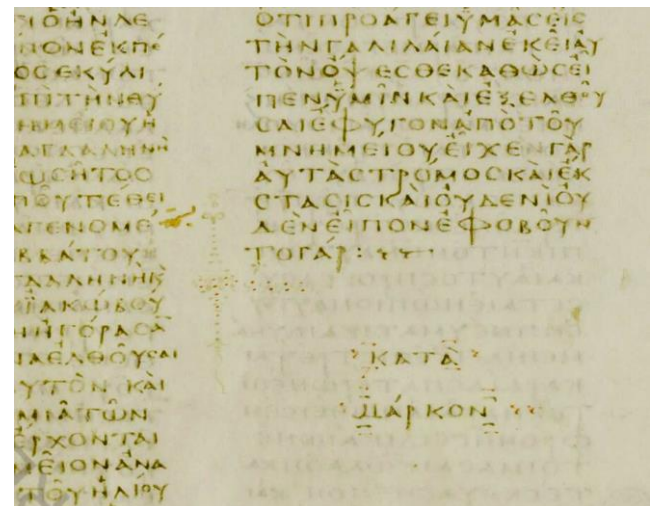 ΙΟΗΝΛΕ
ΝΟΝΕΚΠΕ
ΟϹΕΚΥΛΙ
ΠΙΤΗΝΘΥ
ΗΜΕΙΟΥΗ
ΑΓΔΑΛΗΝΗ
ΙΩϹΗΤΟϹ
ΠΟΥΤΕΘΕΙ
ΑΓΕΝΟΜΕ
ΒΒΑΤΟΥΗ
ΓΔΑΛΗΝΗΚ
ΙΑΚΩΒΟΥ
ΗΗΓΟΡΑϹΑ
ΝΑΕΛΘΟΥϹΑΙ
ΥΤΟΝΚΑΙ
ΜΙΑΤΩΝ
ΕΡΧΟΝΤΑΙ
ΜΕΙΟΝΑΝΑ
ΤΟΥΗΛΙΟΥ
ΟΤΙΠΡΟΑΓΕΙΥΜΑϹΕΙϹ
ΤΗΝΓΑΛΙΛΑΙΑΝΕΚΕΙΑΥ
ΤΟΝΟΨΕϹΘΕΚΑΘΩϹΕΙ
ΠΕΝΥΜΙΝΚΑΙΕΞΕΛΘΟΥ
ϹΑΙΕΦΥΓΟΝΑΠΟΤΟΥ
ΜΝΗΜΕΙΟΥΕΙΧΕΝΓΑΡ
ΑΥΤΑϹΤΡΟΜΟϹΚΑΙΕΚ
ϹΤΑϹΙϹΚΑΙΟΥΔΕΝΙΟΥ
ΔΕΝΕΙΠΟΝΕΦΟΒΟΥΝ
ΤΟΓΑΡ:
ΚΑΤΑ
ΜΑΡΚΟΝ